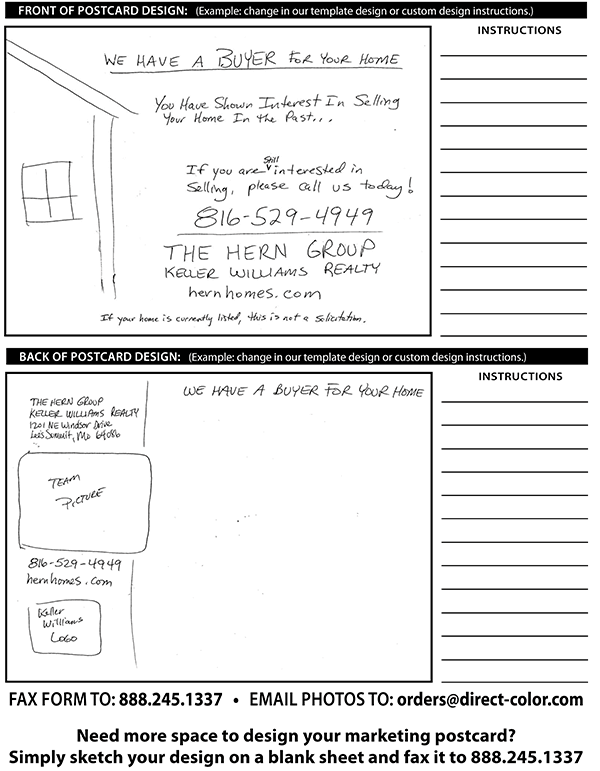 FRONT OF POSTCARD DESIGN: (Example: change in our template design or custom design instructions.)
INSTRUCTIONS
WE HAVE A BUYER FOR YOUR HOME
You Have Shown Interest In Selling
Your Home In the Past...
If you are still interested in
Selling, please call us today!
816-529-4949
THE HERN GROUP
KELLER WILLIAMS REALTY
hernhomes.com
If your home is currently listed, this is not a solicitation.
BACK OF POSTCARD DESIGN: (Example: change in our template design or custom design instructions.)
INSTRUCTIONS
WE HAVE A BUYER FOR YOUR HOME
THE HERN GROUP
KELLER WILLIAMS REALTY
1201 NE Windsor Drive
Lee's Summit, Mo 64086
TEAM
PICTURE
816-529-4949
hernhomes.com
Keller
Williams
LOGO
FAX FORM TO: 888.245.1337 • EMAIL PHOTOS TO: orders@direct-color.com
Need more space to design your marketing postcard?
Simply sketch your design on a blank sheet and fax it to 888.245.1337